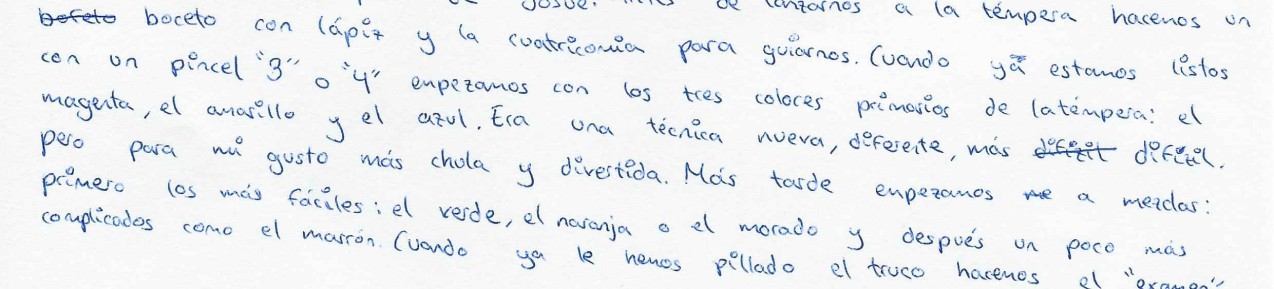 de lanzarnos a la témpera hacemos un
boceto con lápiz y la cuatricomía para guiarnos. Cuando ya estamos listos
con un pincel "3" o "4" empezamos con los tres colores primarios de la témpera: el
magenta, el amarillo y el azul. Era una técnica nueva, diferente, más difízil.
pero para mi gusto más chula y divertida. Más tarde empezamos a mezclar:
primero los más fáciles: el verde, el naranja o el morado y después un poco más
complicados como el marrón. Cuando ya le hemos pillado el truco hacemos el "examen"